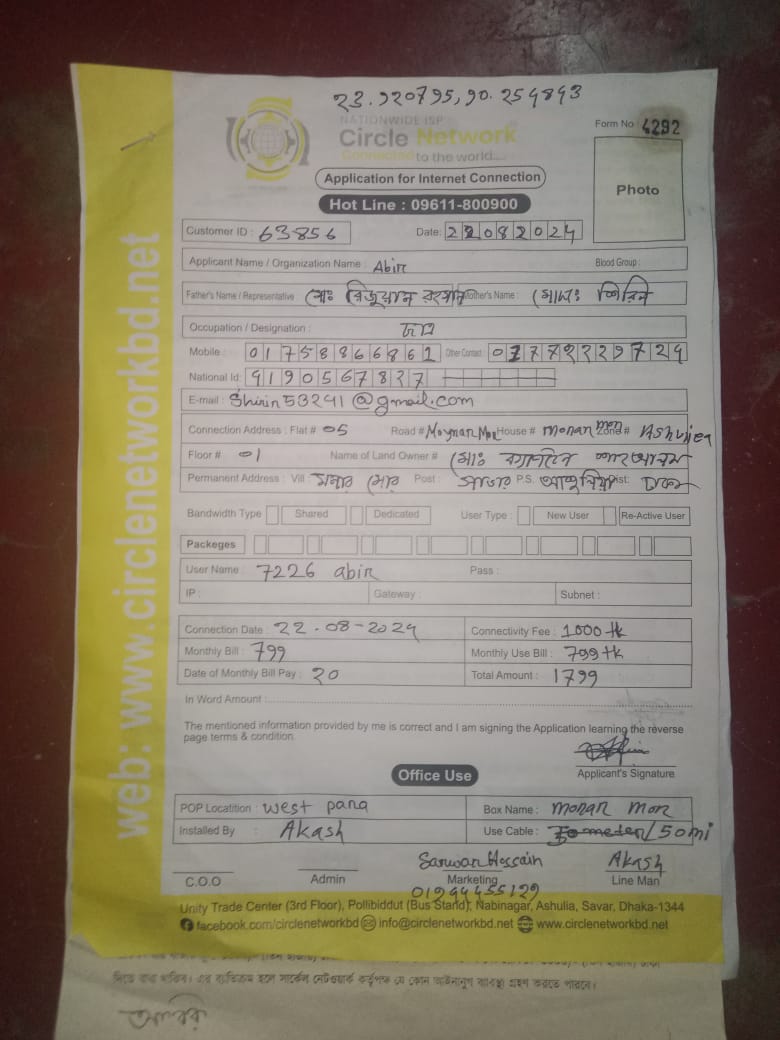 23.920795,90.254843
NATIONWIDE ISP
Circle Network
Connected to the world....
Form No 4292
Application for Internet Connection
Photo
Hot Line : 09611-800900
Customer ID : 63856 Date: 22082024
Applicant Name / Organization Name : Abir Blood Group :
Father's Name / Representative মোঃ রিজুয়ান রহমান Mother's Name : মোসাঃ শিরিন
Occupation / Designation :
Mobile : 01758866862 Other Contact : 01772229724
National Id: 4190567827
E-mail : Shirin53241@gmail.com
Connection Address : Flat # 05 Road # Moynar Mor House # monar mor Zone# Ashuliea
Floor # 01 Name of Land Owner # মোঃ
Permanent Address : Vill মনার মোর Post : সাভার P.S. আশুলিয়া Dist: ঢাকা
Bandwidth Type Shared Dedicated User Type : New User Re-Active User
Packeges
User Name : 7226 abir Pass :
IP : Gateway : Subnet :
Connection Date : 22-08-2024 Connectivity Fee : 1000 tk
Monthly Bill : 799 Monthly Use Bill : 799 tk
Date of Monthly Bill Pay : 20 Total Amount : 1799
In Word Amount :
The mentioned information provided by me is correct and I am signing the Application learning the reverse
page terms & condition.
Applicant's Signature
Office Use
POP Locatition : west para Box Name : monar mor
Installed By : Akash Use Cable : 50mi
Sarwar Hossain Akash
C.O.O Admin Marketing Line Man
01944455129
Unity Trade Center (3rd Floor), Pollibiddut (Bus Stand), Nabinagar, Ashulia, Savar, Dhaka-1344
facebook.com/circlenetworkbd info@circlenetworkbd.net www.circlenetworkbd.net
web: www.circlenetworkbd.net
দিতে বাধ্য থাকিব। এর ব্যতিক্রম হলে সার্কেল নেটওয়ার্ক কর্তৃপক্ষ যে কোন আইনানুগ ব্যবস্থা গ্রহণ করতে পারবে।
আবির